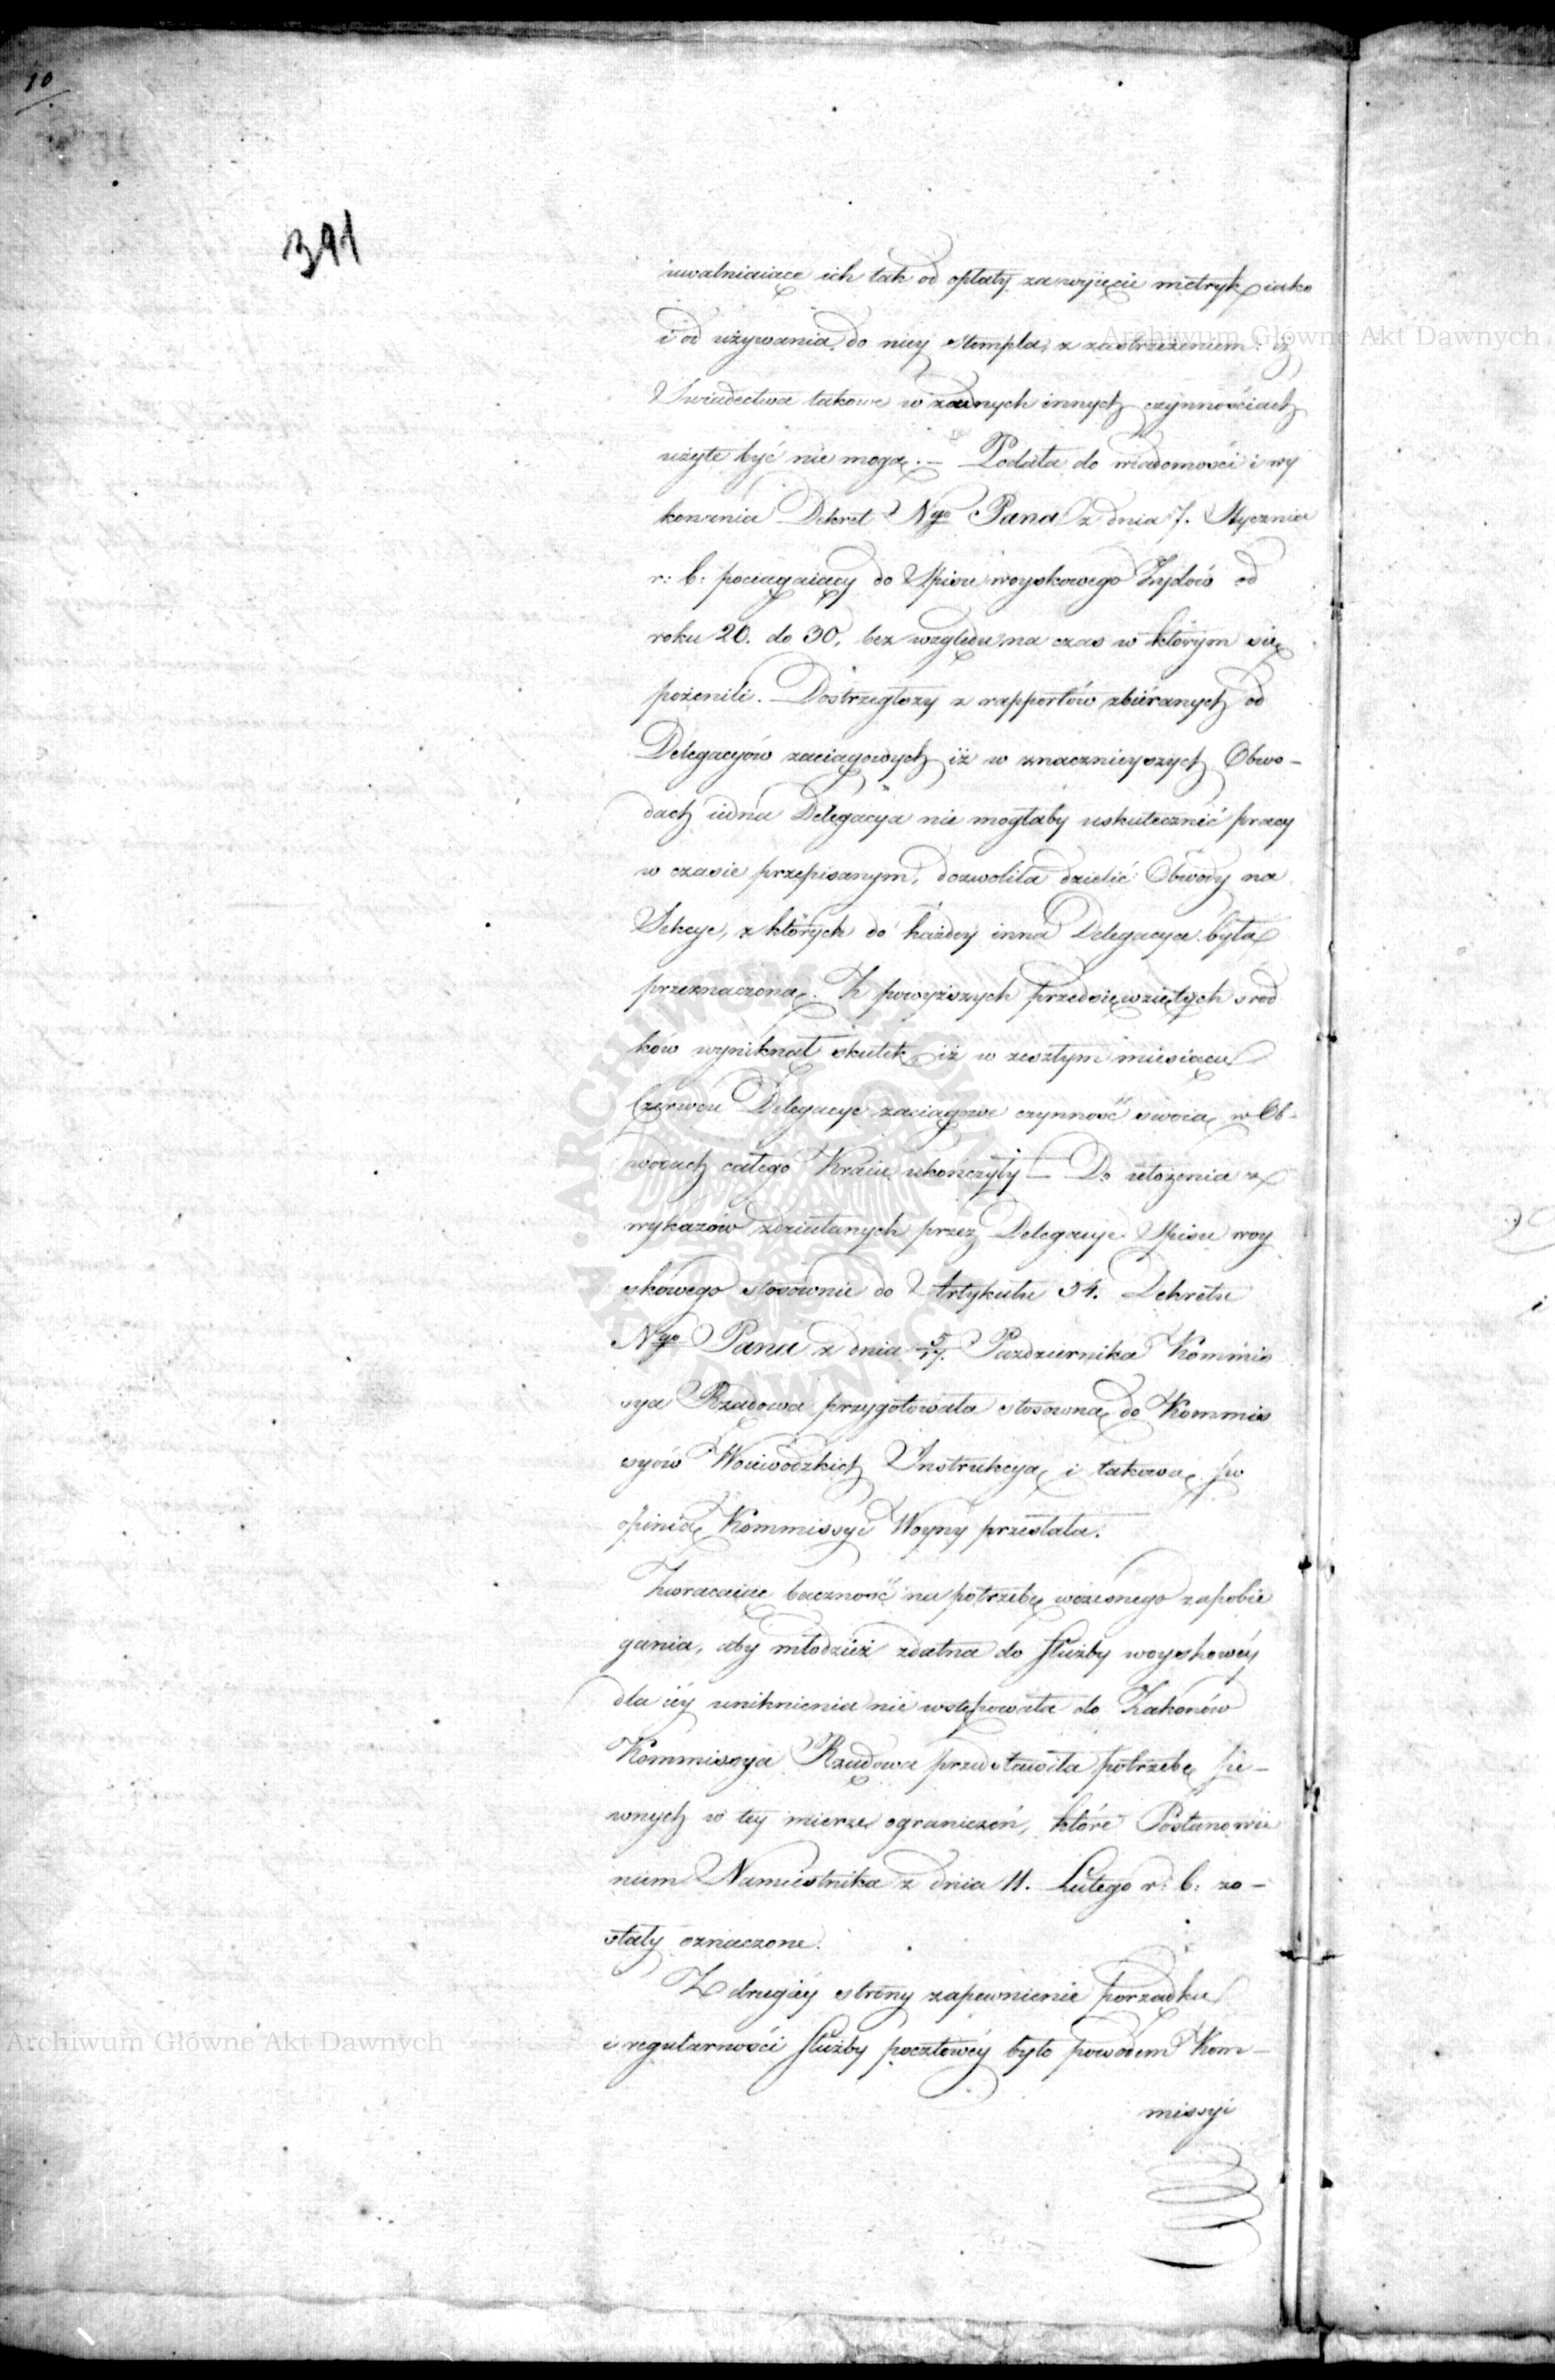 10
391
uwalniaiące ich tak od opłaty za wyjęcie metryk, iako
i od używania do niey stempla, z zastrzeżeniem: iż
Swiadectwa takowe w żadnych innych czynnościach
użyte być nie mogą. — Podała do wiadomości i wy
konania Dekret Ngo Pana z dnia 7. Stycznia
r: b: pociągaiący do Spisu woyskowego Żydów od
roku 20. do 30, bez względu na czas w którym się
pożenili. — Dostrzegłszy z rapportów zbiéranych od
Delegacyów zaciągowych iż w znacznieyszych Obwo-
dach iedna Delegacya nie mogłaby uskutecznić pracy
w czasie przepisanym, dozwoliła dzielić Obwody na
Sekcye, z których do każdey inna Delegacya była
przeznaczoną. Z powyższych przedsięwziętych srod
ków wyniknął skutek, iż w zeszłym miesiącu
Czerwcu Delegacye zaciągowe czynność swoią w Ob-
wodach całego Kraiu ukończyły — Do ułożenia z
wykazów zdziałanych przez Delegacye Spisu woy
skowego stosownie do Artykułu 54. Dekretu
Ngo Pana z dnia 5/17. Pazdziernika Kommis
sya Rządowa przygotowała stosowną do Kommis
syów Woiewódzkich Instrukcyą i takową po
opinią Kommissyi Woyny przesłała.
Zwracaiąc baczność na potrzebę wczesnego zapobie
gania, aby młodzież zdatna do służby woyskowéy
dla iéy uniknienia nie wstępowała do Zakonów
Kommissya Rządowa przedstawiła potrzebę pe-
wnych w tey mierze ograniczeń, które Postanowie
niem Namiestnika z dnia 11. Lutego r: b: zo-
stały oznaczone.
Z drugiéy strony zapewnienie porządku
i regularności służby pocztowéy było powodem Kom-
missyi
Archiwum Główne Akt Dawnych
Archiwum Główne Akt Dawnych